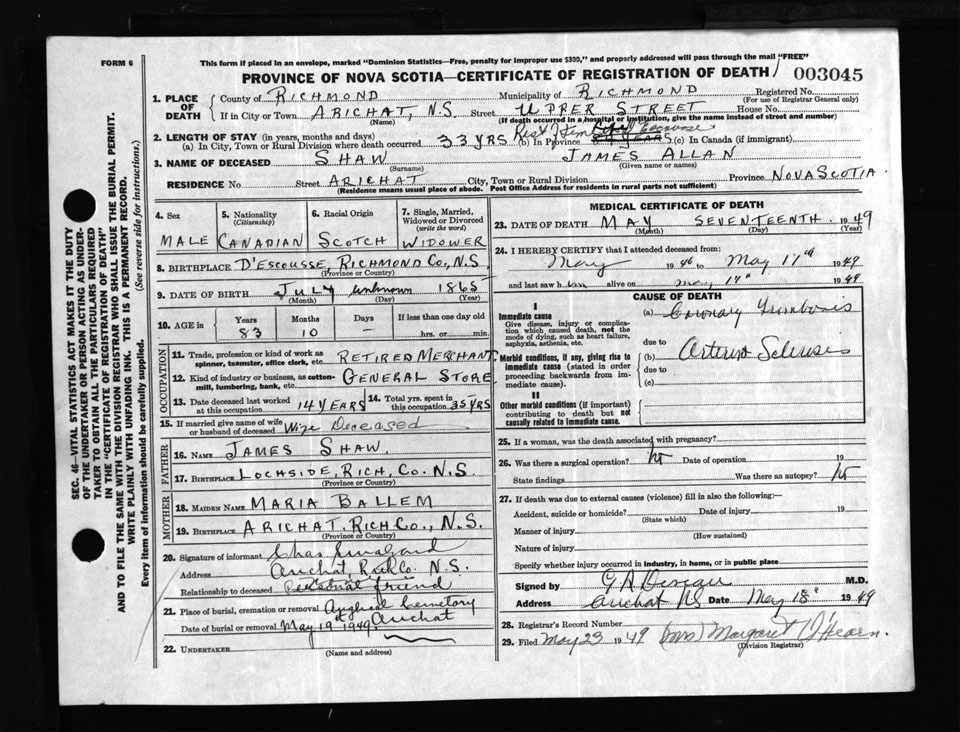 FORM 6
This form if placed in an envelope, marked "Dominion Statistics—Free, penalty for improper use $300," and properly addressed will pass through the mail "FREE"
PROVINCE OF NOVA SCOTIA—CERTIFICATE OF REGISTRATION OF DEATH 003045
1. PLACE OF DEATH County of RICHMOND Municipality of RICHMOND Registered No.
(For use of Registrar General only)
If in City or Town ARICHAT, N.S. Street UPPER STREET House No.
(Name) (If death occurred in a hospital or institution, give the name instead of street and number)
2. LENGTH OF STAY (in years, months and days)
(a) In City, Town or Rural Division where death occurred 33 YRS (b) In Province (c) In Canada (if immigrant)
3. NAME OF DECEASED SHAW JAMES ALLAN
(Surname) (Given name or names)
RESIDENCE No. Street ARICHAT City, Town or Rural Division Province NOVA SCOTIA
(Residence means usual place of abode. Post Office Address for residents in rural parts not sufficient)
4. Sex MALE
5. Nationality (Citizenship) CANADIAN
6. Racial Origin SCOTCH
7. Single, Married, Widowed or Divorced (write the word) WIDOWER
8. BIRTHPLACE D'ESCOUSSE RICHMOND CO., N.S.
(Province or Country)
9. DATE OF BIRTH JULY unknown 1865
(Month) (Day) (Year)
10. AGE in Years Months Days If less than one day old
83 10 — hrs. or min.
OCCUPATION
11. Trade, profession or kind of work as spinner, teamster, office clerk, etc. RETIRED MERCHANT
12. Kind of industry or business, as cotton-mill, lumbering, bank, etc. GENERAL STORE
13. Date deceased last worked at this occupation 14 YEARS 14. Total yrs. spent in this occupation 35 YRS
15. If married give name of wife or husband of deceased Wife Deceased
FATHER
16. Name JAMES SHAW
17. BIRTHPLACE LOCHSIDE, RICH, CO. N.S.
(Province or Country)
MOTHER
18. MAIDEN NAME MARIA BALLEM
19. BIRTHPLACE ARICHAT. RICH CO., N.S.
(Province or Country)
20. Signature of informant Chas
Address Arichat, Rich Co. N.S.
Relationship to deceased Personal friend
21. Place of burial, cremation or removal Cemetery Arichat
Date of burial or removal May 19th 1949
22. UNDERTAKER
(Name and address)
MEDICAL CERTIFICATE OF DEATH
23. DATE OF DEATH MAY SEVENTEENTH. 1949
(Month) (Day) (Year)
24. I HEREBY CERTIFY that I attended deceased from:
May 1946 to May 17th 1949
and last saw h im alive on May 17th 1949
CAUSE OF DEATH
I
Immediate cause
Give disease, injury or complication which caused death, not the mode of dying, such as heart failure, asphyxia, asthenia, etc.
(a) Coronary Trombosis
due to
Morbid conditions, if any, giving rise to immediate cause (stated in order proceeding backwards from immediate cause).
(b) Arterio Sclerosis
due to
(c)
II
Other morbid conditions (if important) contributing to death but not causally related to immediate cause.
25. If a woman, was the death associated with pregnancy?
26. Was there a surgical operation? No Date of operation 19
State findings Was there an autopsy? No
27. If death was due to external causes (violence) fill in also the following:—
Accident, suicide or homicide? Date of injury 19
(State which)
Manner of injury
(How sustained)
Nature of injury
Specify whether injury occurred in industry, in home, or in public place
Signed by M.D.
Address Arichat NS Date May 18th 1949
28. Registrar's Record Number
29. Filed May 23 1949 (Mrs) Margaret O'Hearn.
(Division Registrar)
SEC. 46—VITAL STATISTICS ACT MAKES IT THE DUTY
OF THE UNDERTAKER OR PERSON ACTING AS UNDER-
TAKER TO OBTAIN ALL THE PARTICULARS REQUIRED
IN THE "CERTIFICATE OF REGISTRATION OF DEATH"
AND TO FILE THE SAME WITH THE DIVISION REGISTRAR WHO SHALL ISSUE THE BURIAL PERMIT.
WRITE PLAINLY WITH UNFADING INK. THIS IS A PERMANENT RECORD.
Every item of information should be carefully supplied. (See reverse side for instructions.)